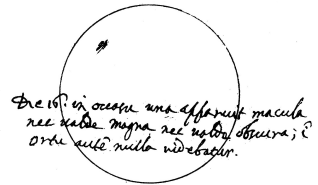 Die 16. in occasu una apparuit macula
nec valde magna nec valde obscura; ĩ
ortu autẽ nulla videbatur.